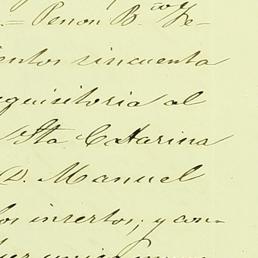 = Penon R.^cor Ge-
ientos sincuenta
equisitoria al
Sta Catarina
D. Manuel
los insertos; y con-